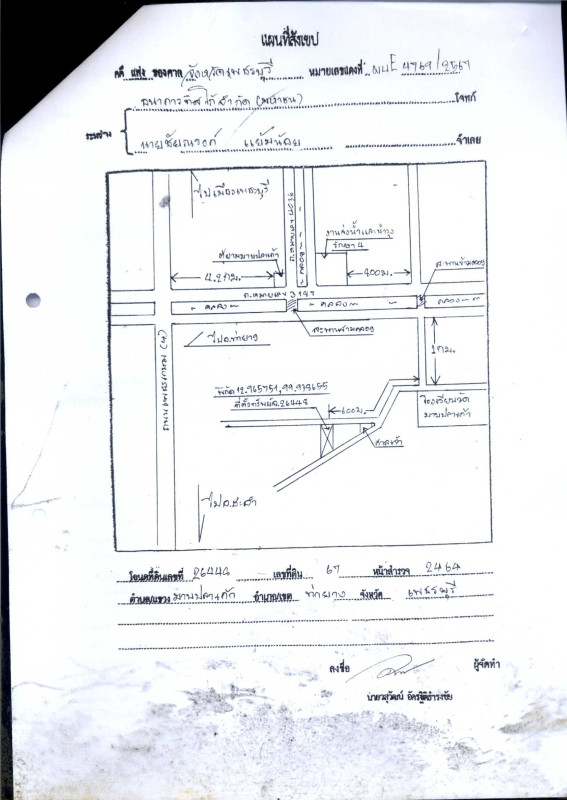 แผนที่สังเขป
คดี แพ่ง ของศาล จังหวัดเพชรบุรี หมายเลขแดงที่ ผบE 4769/2567
ธนาคารทิสโก้จำกัด (มหาชน) โจทก์
ระหว่าง
นายชัยณรงค์ แย้มน้อย จำเลย
ไปเมืองเพชรบุรี
คลอง
งานส่งน้ำและบำรุง
รักษา 4
สะพานข้ามคลอง
4.2 กม.
400ม.
คลอง
คลอง
คลอง
สะพานข้ามคลอง
ไปอ.ท่ายาง
1กม.
ถนนเพชรเกษม (4)
พิกัด 12.965751, 99.938655
ที่ตั้งทรัพย์ฉ.26448
600ม.
โรงเรียนวัด
ศาลเจ้า
ไปอ.ชะอำ
โฉนดที่ดินเลขที่ 26448 เลขที่ดิน 67 หน้าสำรวจ 2464
ตำบล/แขวง อำเภอ/เขต ท่ายาง จังหวัด เพชรบุรี
ลงชื่อ ผู้จัดทำ
นายวสุวัฒน์ อัครฐิติดำรงชัย